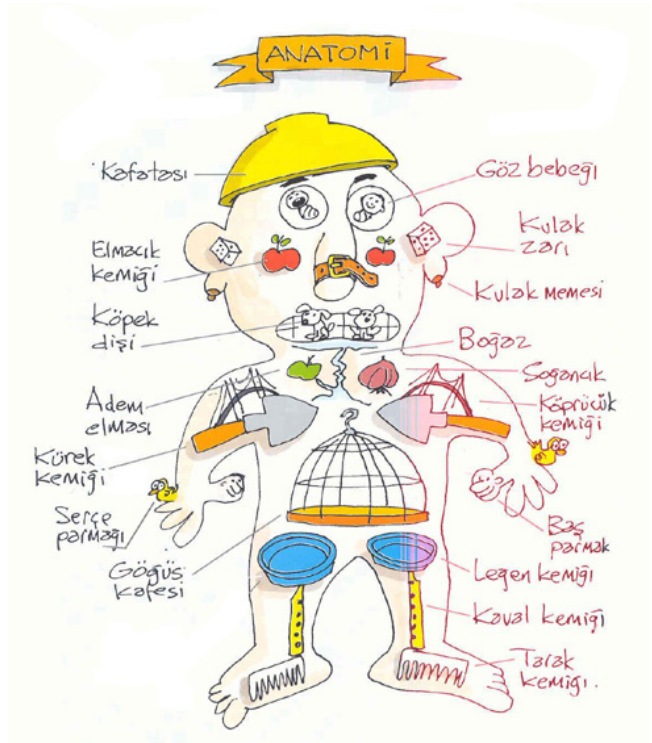 ANATOMİ
Kafatası
Elmacık
kemiği
Köpek
dişi
Adem
elması
Kürek
kemiği
Serçe
parmağı
Göğüs
kafesi
Göz bebeği
Kulak
zarı
Kulak memesi
Boğaz
Soğancık
Köprücük
kemiği
Baş
parmak
Leğen kemiği
Kaval kemiği
Tarak
kemiği.